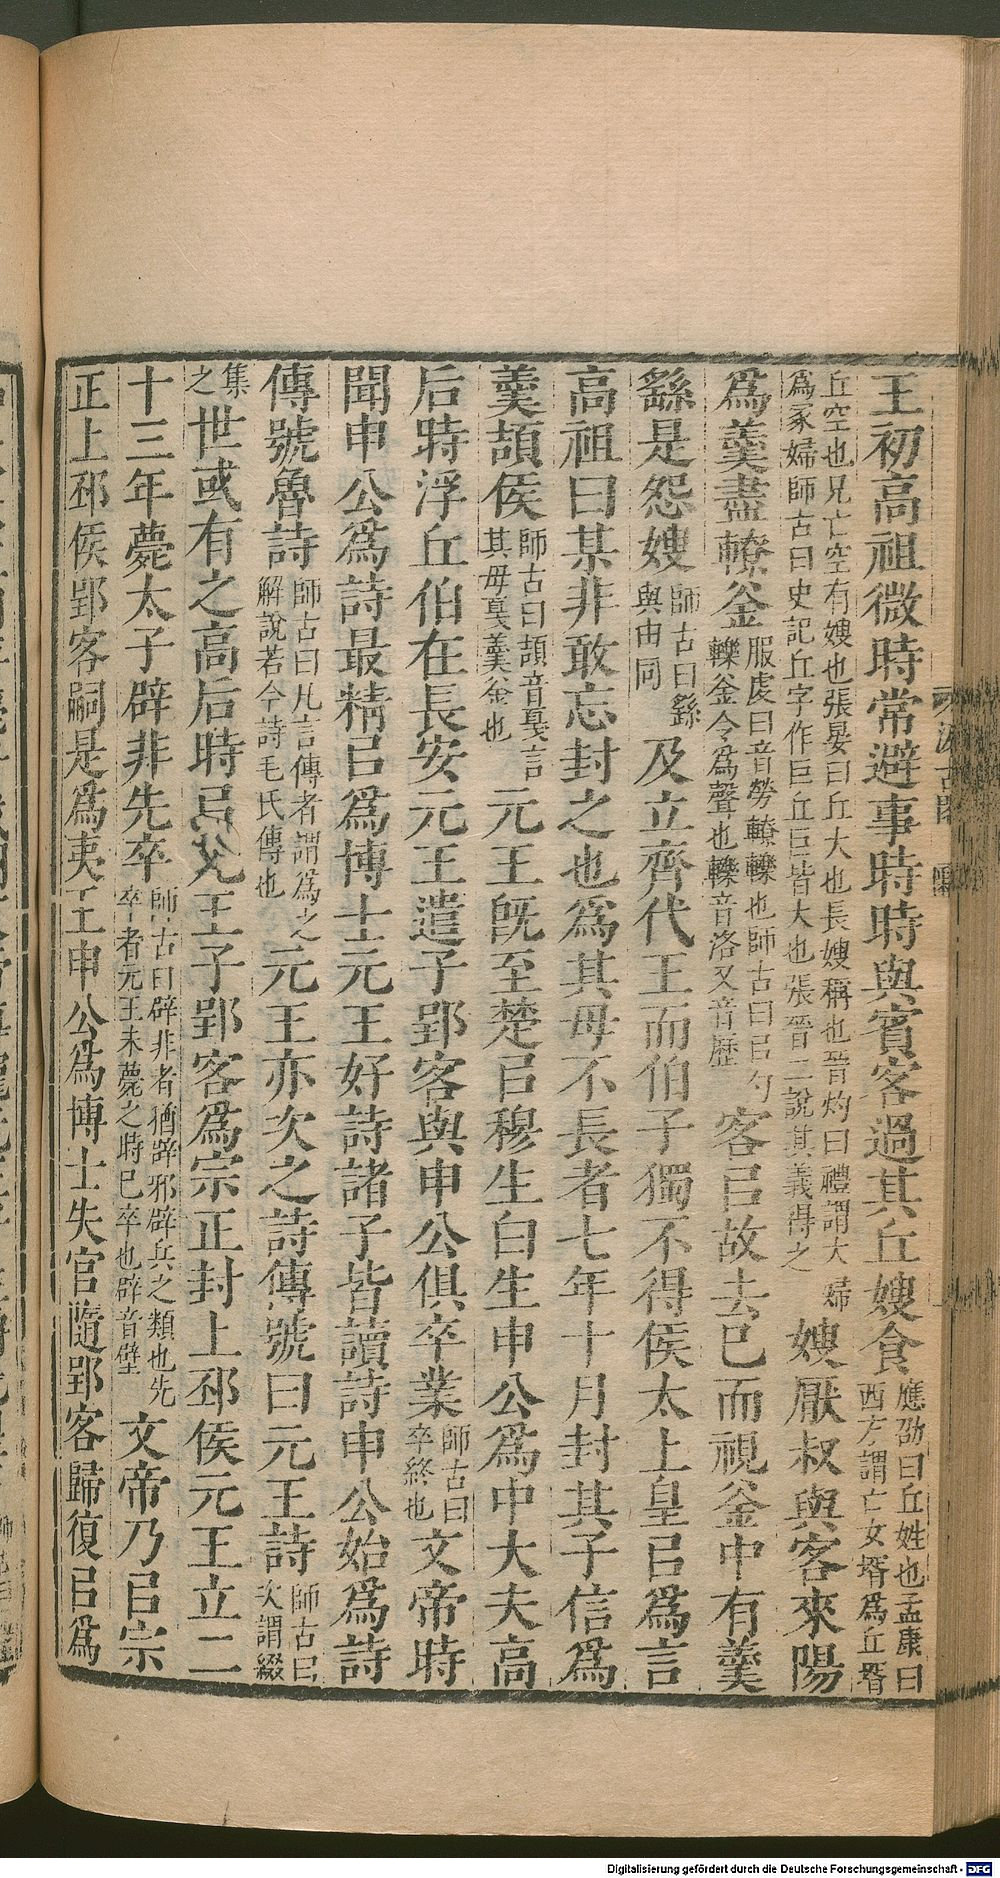 王初高祖微時常避事時時與賓客過其丘嫂食應劭曰丘姓也孟康曰西方謂亡女壻爲丘壻
丘空也兄亡空有嫂也張晏曰丘大也長嫂稱也晉灼曰禮謂大婦爲冢婦師古曰史記丘字作巨丘巨皆大也張晉二說其義得之嫂厭叔與客來陽
爲羹盡轑釜服虔曰音勞轑轢也師古曰㠯勺轢釜令爲聲也轢音洛又音歷客㠯故去已而視釜中有羹
繇是怨嫂師古曰繇與由同及立齊代王而伯子獨不得侯太上皇㠯爲言
高祖曰某非敢忘封之也爲其母不長者七年十月封其子信爲
羹頡侯師古曰頡音戛言其母戛羹釜也元王旣至楚㠯穆生白生申公爲中大夫高
后時浮丘伯在長安元王遣子郢客與申公俱卒業師古曰卒終也文帝時
聞申公爲詩最精㠯爲博士元王好詩諸子皆讀詩申公始爲詩
傳號魯詩師古曰凡言傳者謂爲之解說若今詩毛氏傳也元王亦次之詩傳號曰元王詩師古曰次謂綴
集之世或有之高后時㠯元王子郢客爲宗正封上邳侯元王立二
十三年薨太子辟非先卒師古曰辟非者猶辟邪辟兵之類也先卒者元王未薨之時已卒也辟音璧文帝乃㠯宗
正上邳侯郢客嗣是爲夷王申公爲博士失官隨郢客歸復㠯爲
汲古閣
Digitalisierung gefördert durch die Deutsche Forschungsgemeinschaft - DFG